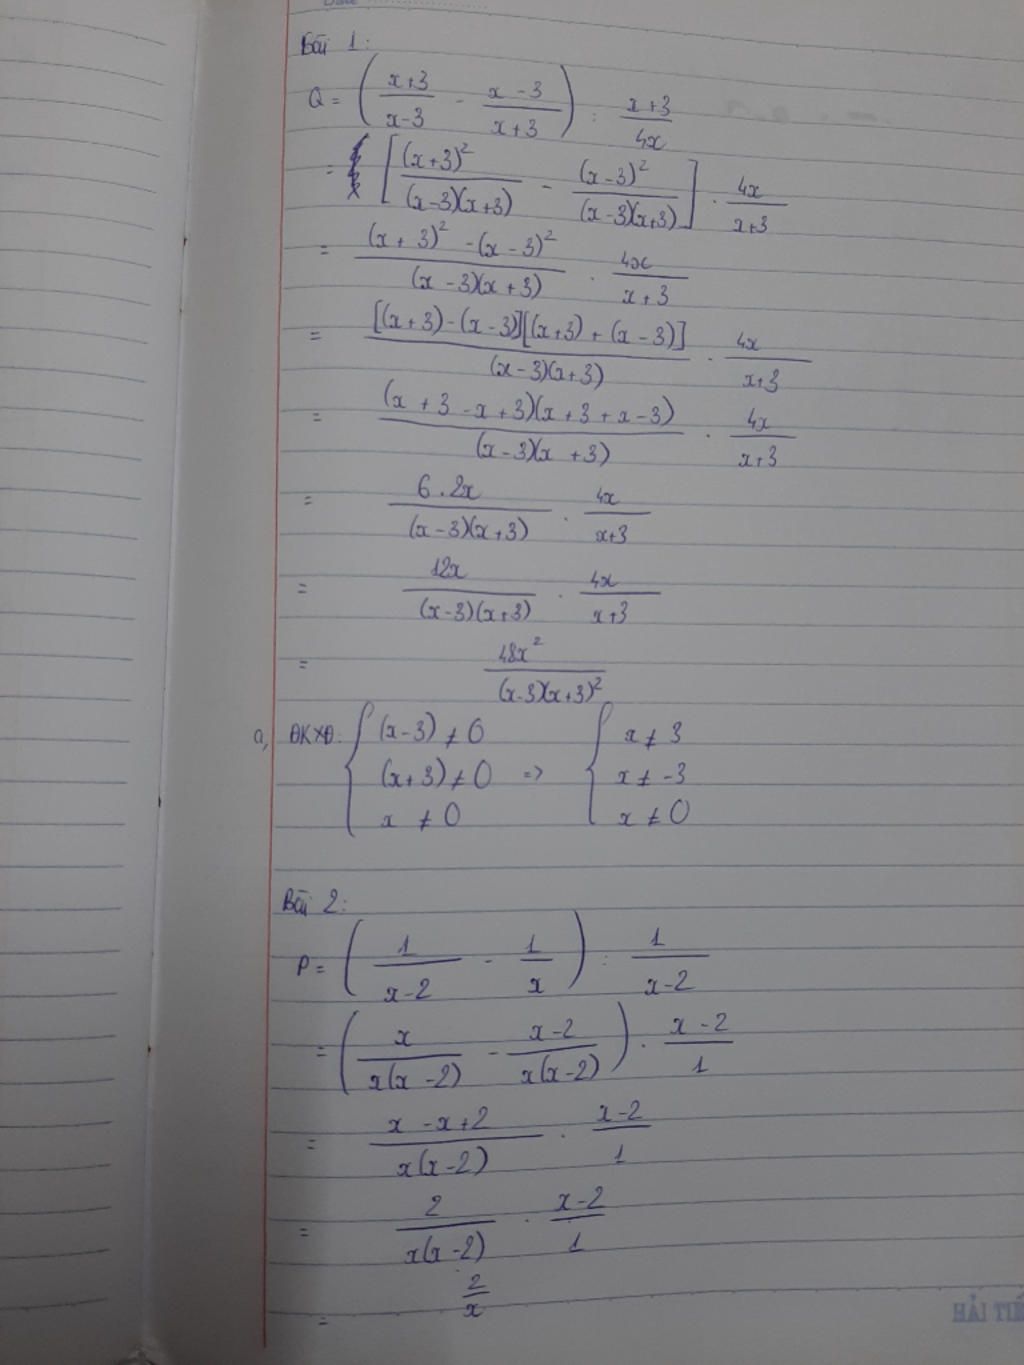 Date
Bài 1:
Q = ( x+3 / x-3 - x-3 / x+3 ) : x+3 / 4x
= [ (x+3)² / (x-3)(x+3) - (x-3)² / (x-3)(x+3) ] . 4x / x+3
= (x+3)² - (x-3)² / (x-3)(x+3) . 4x / x+3
= [(x+3)-(x-3)][(x+3)+(x-3)] / (x-3)(x+3) . 4x / x+3
= (x+3-x+3)(x+3+x-3) / (x-3)(x+3) . 4x / x+3
= 6.2x / (x-3)(x+3) . 4x / x+3
= 12x / (x-3)(x+3) . 4x / x+3
= 48x² / (x-3)(x+3)²
a, ĐKXĐ: { (x-3) ≠ 0 { x ≠ 3
(x+3) ≠ 0 => x ≠ -3
x ≠ 0 x ≠ 0
Bài 2:
P = ( 1 / x-2 - 1 / x ) : 1 / x-2
= ( x / x(x-2) - x-2 / x(x-2) ) . x-2 / 1
= x-x+2 / x(x-2) . x-2 / 1
= 2 / x(x-2) . x-2 / 1
= 2 / x
HẢI